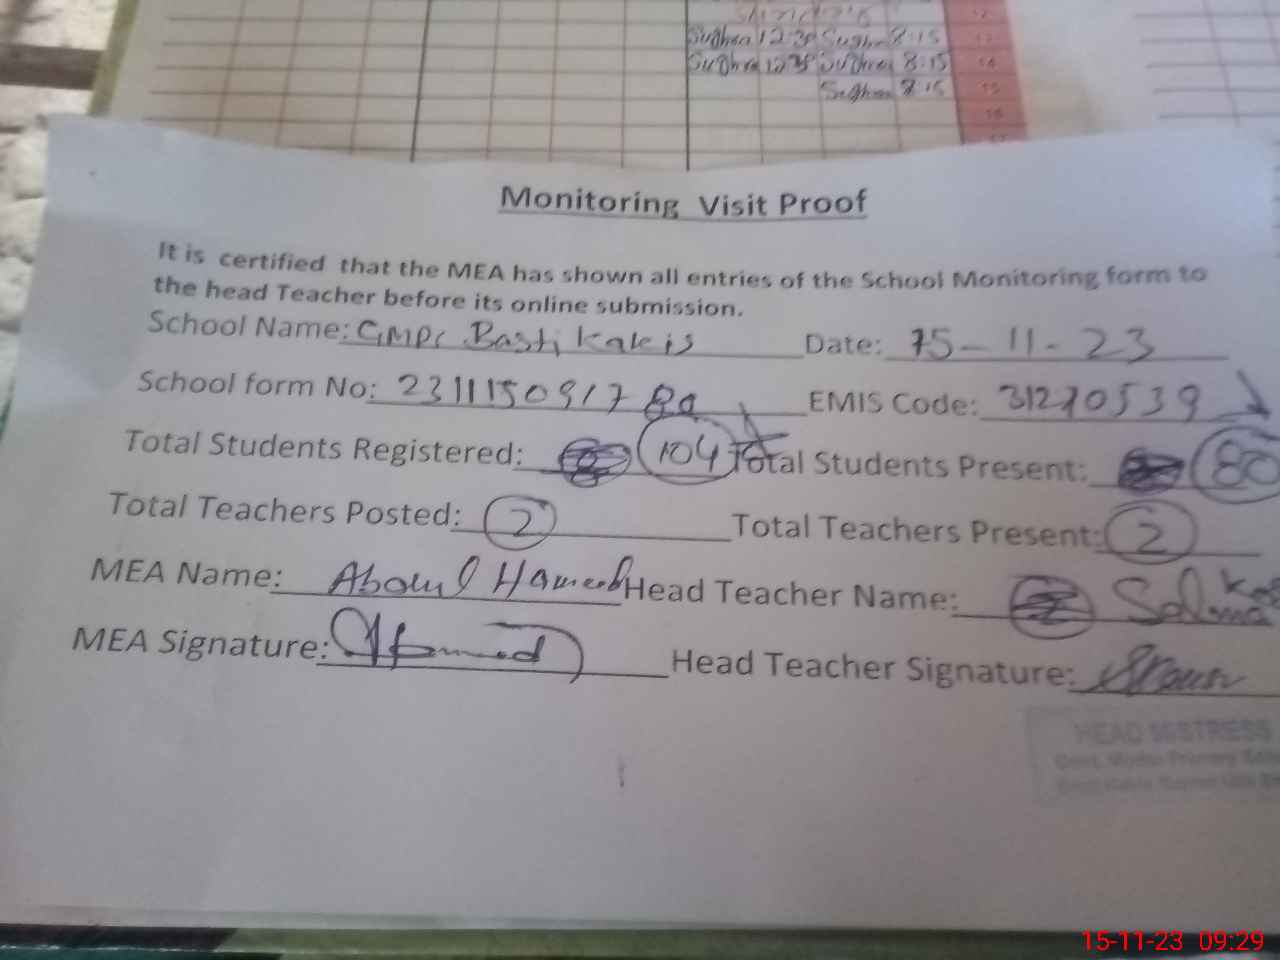 Sughra 12:30 Sughra 8:15 13
Sughra 12:30 Sughra 8:15 14
Sughra 8:15 15
16
Monitoring Visit Proof
It is certified that the MEA has shown all entries of the School Monitoring form to
the head Teacher before its online submission.
School Name: GMPS Basti Date: 15-11-23
School form No: EMIS Code: 31270539
Total Students Registered: 104 Total Students Present: 80
Total Teachers Posted: 2 Total Teachers Present: 2
MEA Name: Abdul Hameed Head Teacher Name: Salma
MEA Signature: Head Teacher Signature:
HEAD MISTRESS
15-11-23 09:29